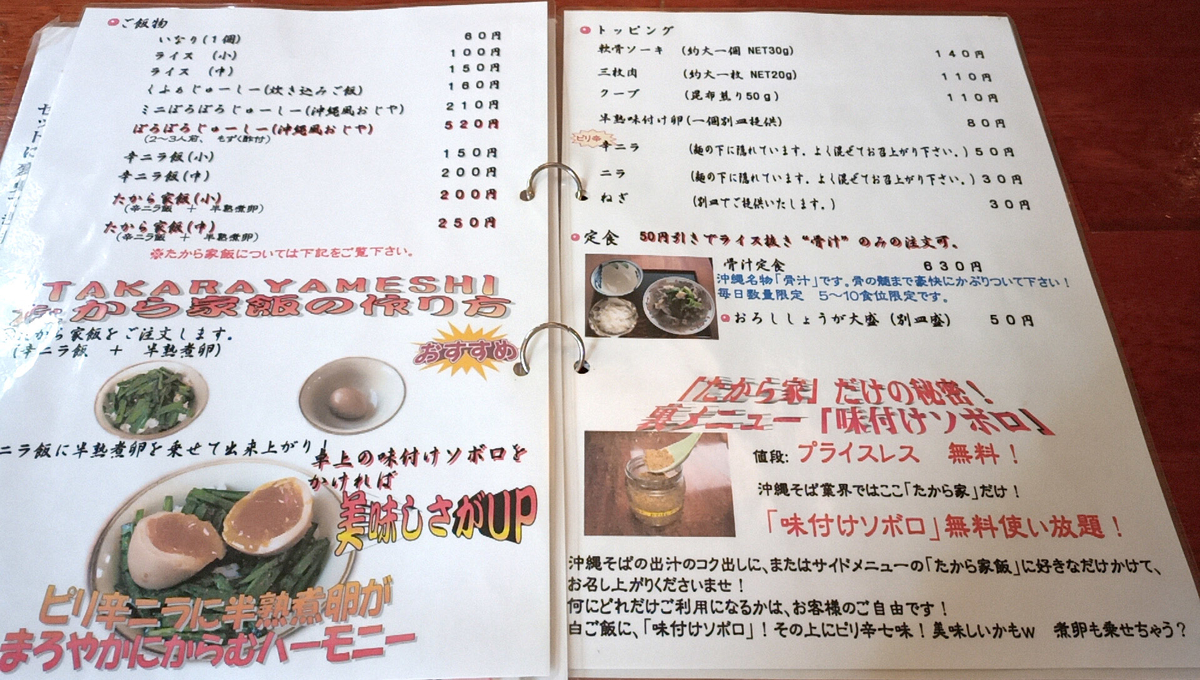 ご飯物
いなり(1個) 60円
ライス (小) 100円
ライス (中) 150円
くふぁじゅーしー(炊き込みご飯) 160円
ミニぼろぼろじゅーしー(沖縄風おじや) 210円
ぼろぼろじゅーしー(沖縄風おじや) 520円
(2～3人前、もずく酢付)
辛ニラ飯(小) 150円
辛ニラ飯(中) 200円
たから家飯(小) 200円
(辛ニラ飯 + 半熟煮卵)
たから家飯(中) 250円
(辛ニラ飯 + 半熟煮卵)
※たから家飯については下記をご覧下さい。
TAKARAYAMESHI
から家飯の作り方
から家飯をご注文します。
(辛ニラ飯 + 半熟煮卵)
おすすめ
ニラ飯に半熟煮卵を乗せて出来上がり!
卓上の味付けソボロを
かければ
美味しさがUP
ピリ辛ニラに半熟煮卵が
まろやかにからむハーモニー
トッピング
軟骨ソーキ (約大一個 NET30g) 140円
三枚肉 (約大一枚 NET20g) 110円
クーブ (昆布煎り50g) 110円
半熟味付け卵(一個別皿提供) 80円
ピリ辛
辛ニラ (麺の下に隠れています。よく混ぜてお召上がり下さい。) 50円
ニラ (麺の下に隠れています。よく混ぜてお召上がり下さい。) 30円
ねぎ (別皿でご提供いたします。) 30円
定食 50円引きでライス抜き“骨汁”のみの注文可。
骨汁定食 630円
沖縄名物「骨汁」です。骨の髄まで豪快にかぶりついて下さい!
毎日数量限定 5～10食位限定です。
おろししょうが大盛 (別皿盛) 50円
「たから家」だけの秘密!
裏メニュー「味付けソボロ」
値段: プライスレス 無料!
沖縄そば業界ではここ「たから家」だけ!
「味付けソボロ」無料使い放題!
沖縄そばの出汁のコク出しに、またはサイドメニューの「たから家飯」に好きなだけかけて、
お召し上がりくださいませ!
何にどれだけご利用になるかは、お客様のご自由です!
白ご飯に、「味付けソボロ」!その上にピリ辛七味!美味しいかもw 煮卵も乗せちゃう?